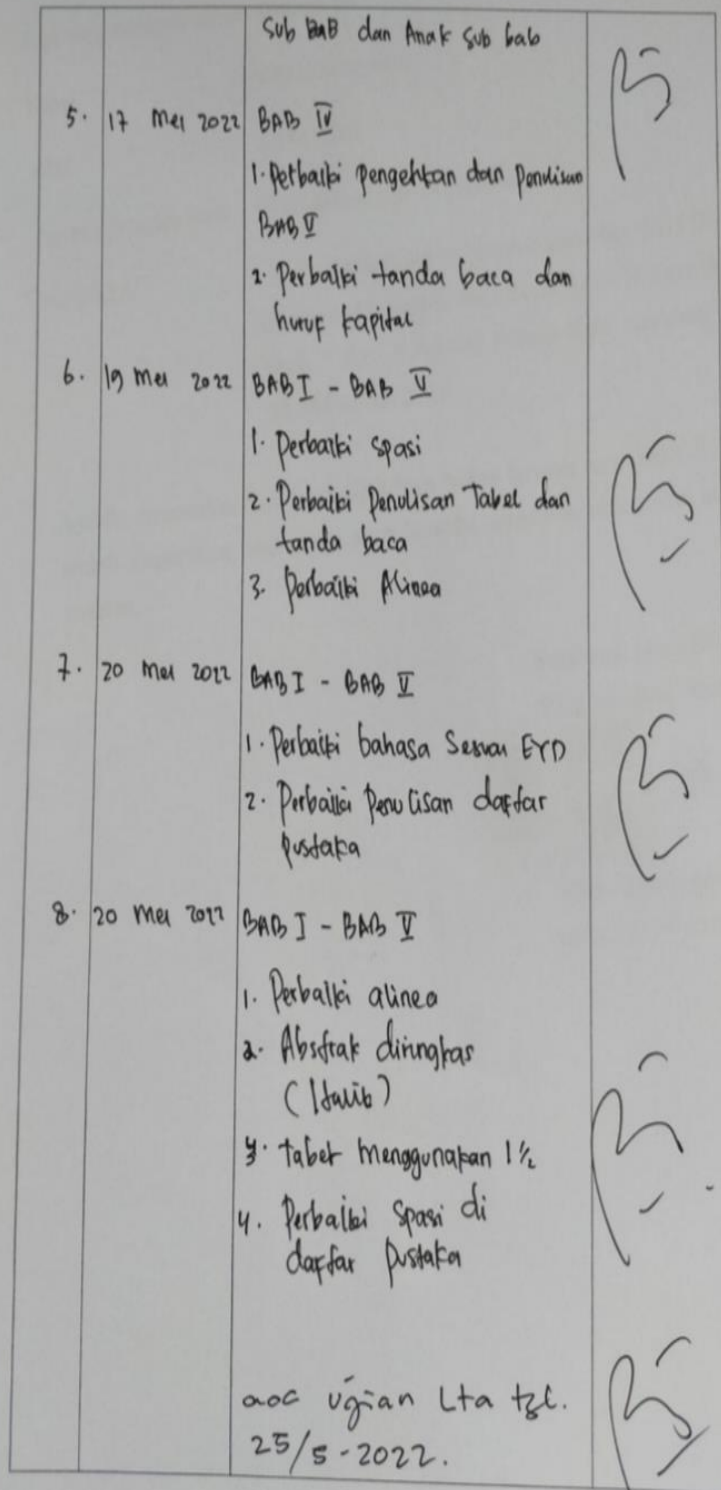 Sub BaB dan Anak sub bab
5. 17 Mei 2022 BAB IV
1. Perbaiki pengetikan dan penulisan
BAB V
2. Perbaiki tanda baca dan
huruf kapital
6. 19 Mei 2022 BAB I - BAB V
1. Perbaiki spasi
2. Perbaiki Penulisan Tabel dan
tanda baca
3. Perbaiki Alinea
7. 20 Mei 2022 BAB I - BAB V
1. Perbaiki bahasa Sesuai EYD
2. Perbaiki Penulisan daftar
pustaka
8. 20 Mei 2022 BAB I - BAB V
1. Perbaiki alinea
2. Abstrak diringkas
(Italic)
3. tabel menggunakan 1 1/2
4. Perbaiki Spasi di
daftar pustaka
acc Ujian Lta tgl.
25/5-2022.